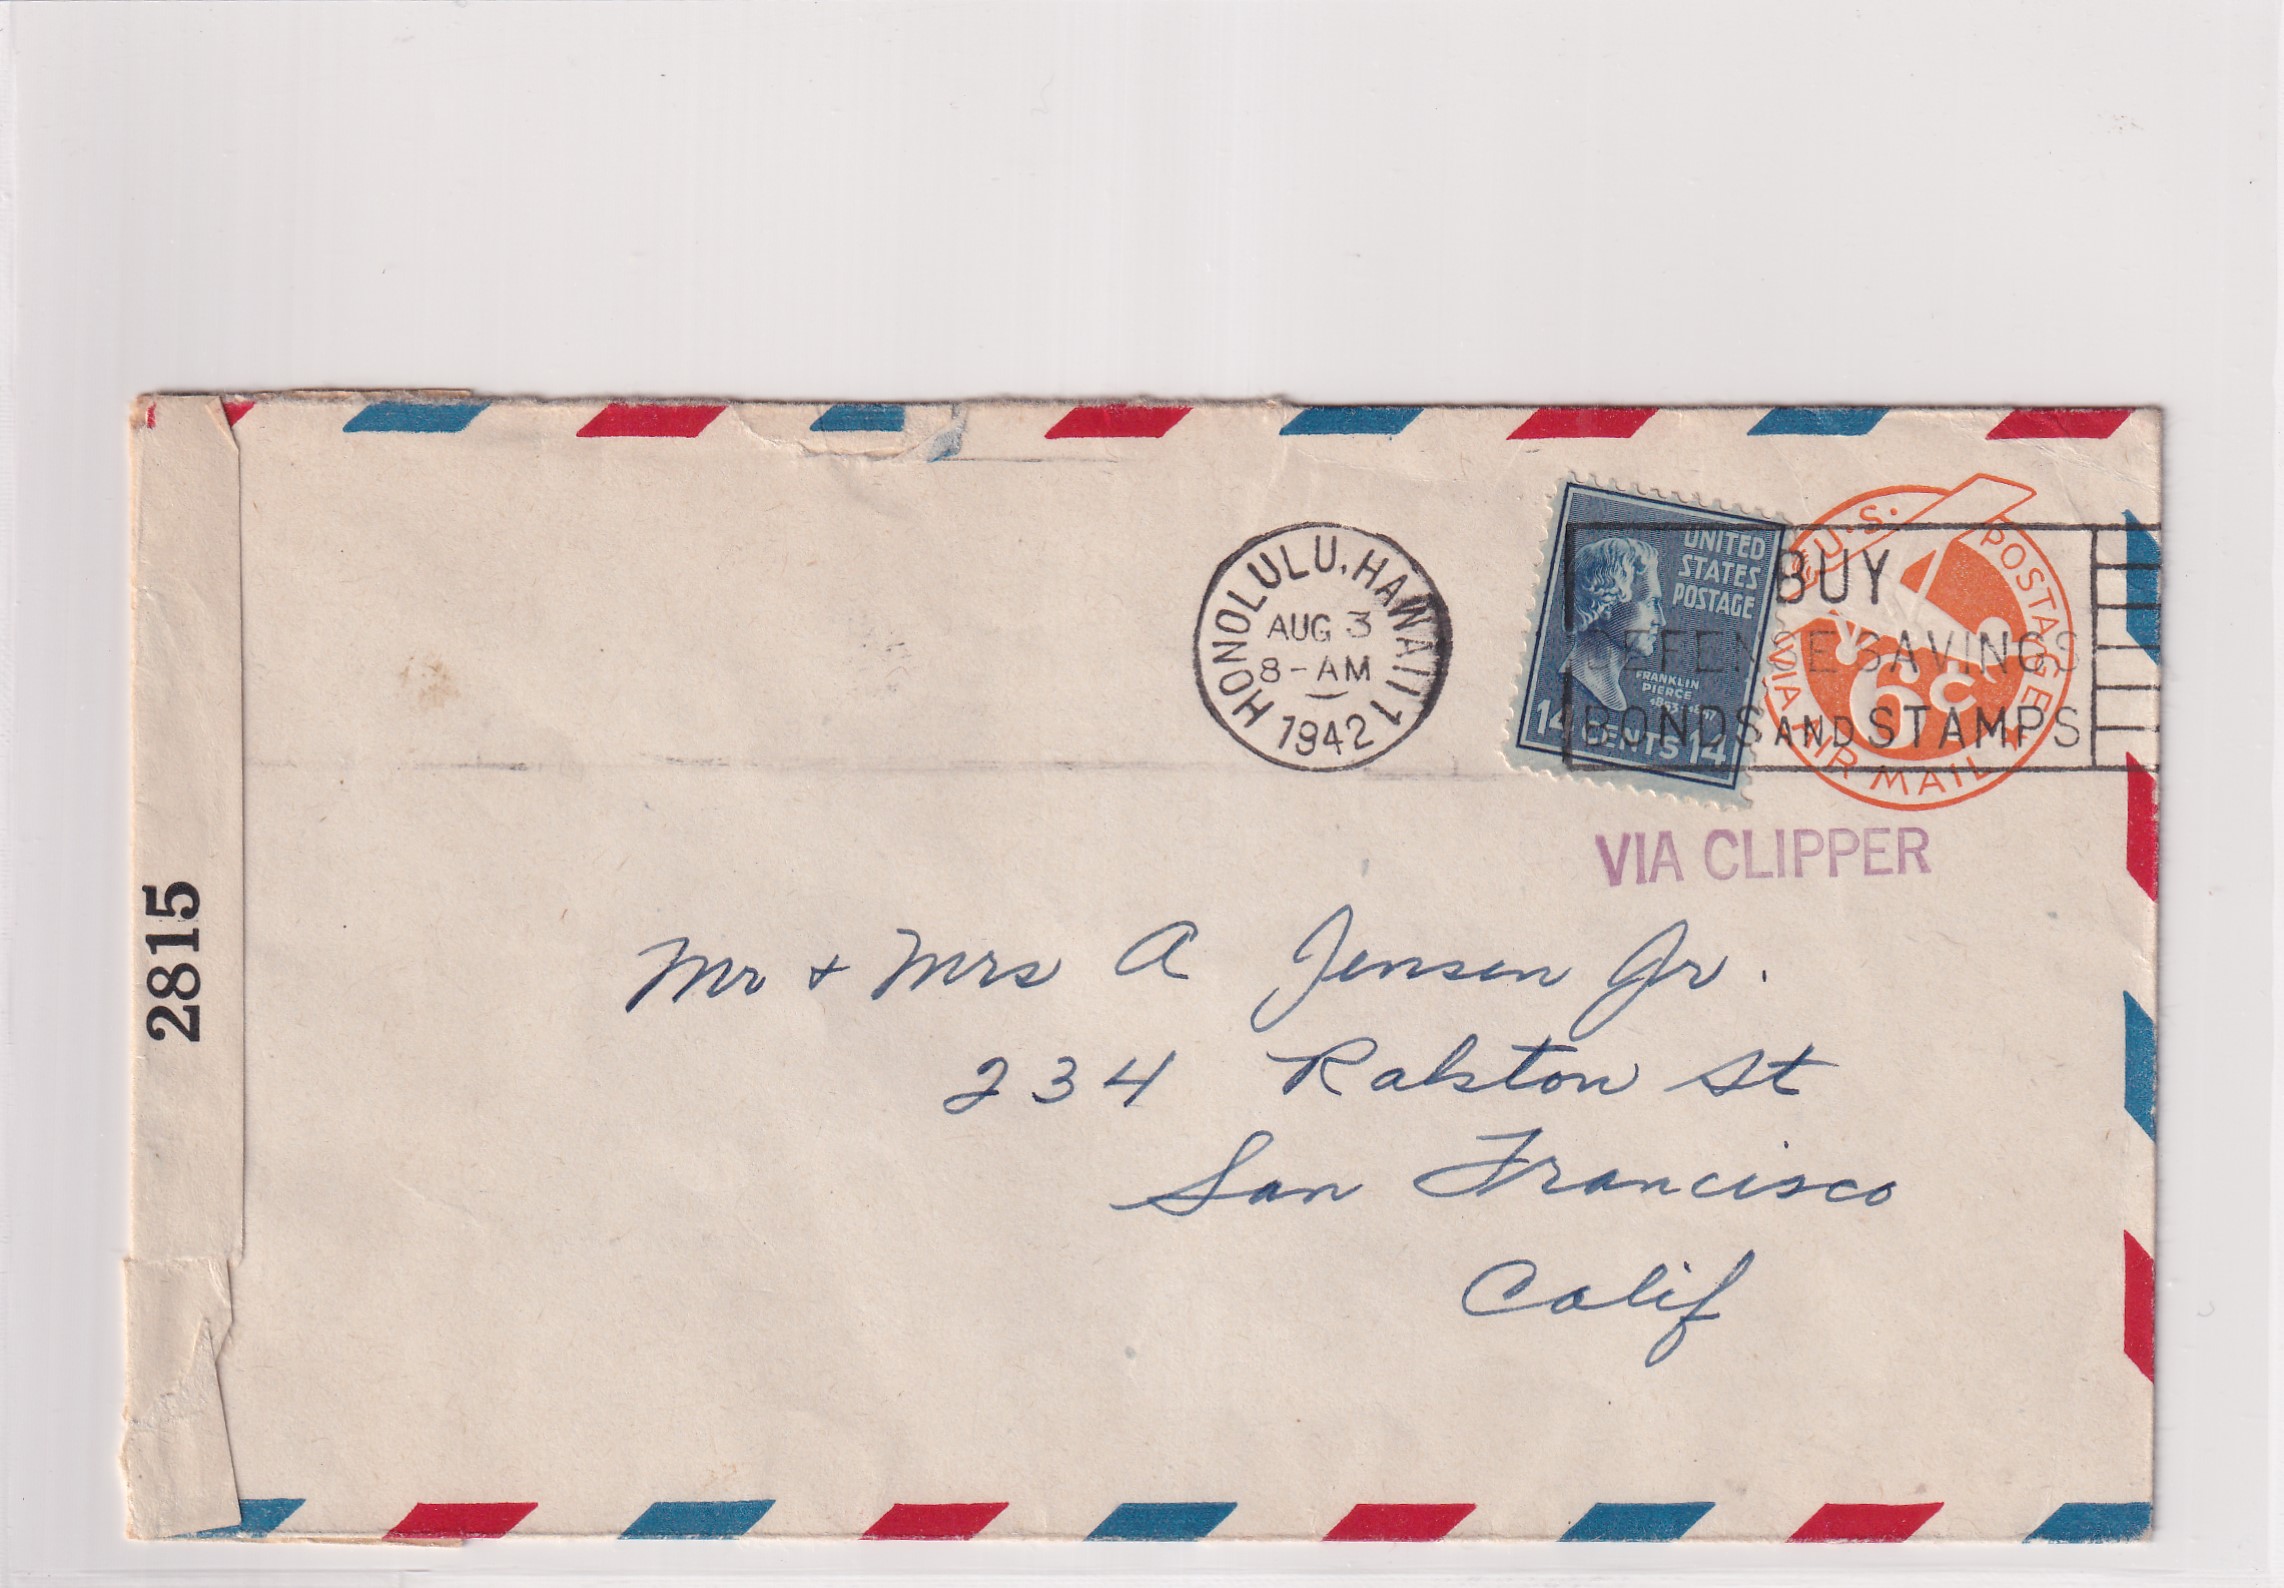 HONOLULU, HAWAII 1
AUG 3
8-AM
1942
UNITED
STATES
POSTAGE
FRANKLIN
PIERCE
14 CENTS 14
U.S. POSTAGE
6c
VIA AIR MAIL
BUY
DEFENSE SAVINGS
BONDS AND STAMPS
VIA CLIPPER
2815
Mr + Mrs A Jensen Jr.
234 Ralston St
San Francisco
Calif